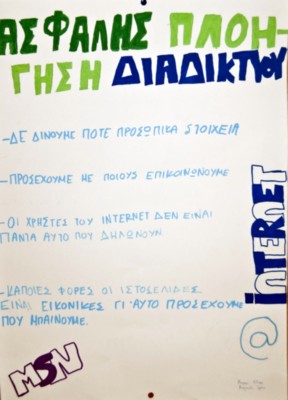 ΑΣΦΑΛΗΣ ΠΛΟΗ-
ΓΗΣΗ ΔΙΑΔΙΚΤΥΟΥ
-ΔΕ ΔΙΝΟΥΜΕ ΠΟΤΕ ΠΡΟΣΩΠΙΚΑ ΣΤΟΙΧΕΙΑ
-ΠΡΟΣΕΧΟΥΜΕ ΜΕ ΠΟΙΟΥΣ ΕΠΙΚΟΙΝΩΝΟΥΜΕ
-ΟΙ ΧΡΗΣΤΕΣ ΤΟΥ INTERNET ΔΕΝ ΕΙΝΑΙ
ΠΑΝΤΑ ΑΥΤΟ ΠΟΥ ΔΗΛΩΝΟΥΝ
-ΚΑΠΟΙΕΣ ΦΟΡΕΣ ΟΙ ΙΣΤΟΣΕΛΙΔΕΣ
ΕΙΝΑΙ ΕΙΚΟΝΙΚΕΣ ΓΙ'ΑΥΤΟ ΠΡΟΣΕΧΟΥΜΕ
ΠΟΥ ΜΠΑΙΝΟΥΜΕ.
INTERNET
@
MSN